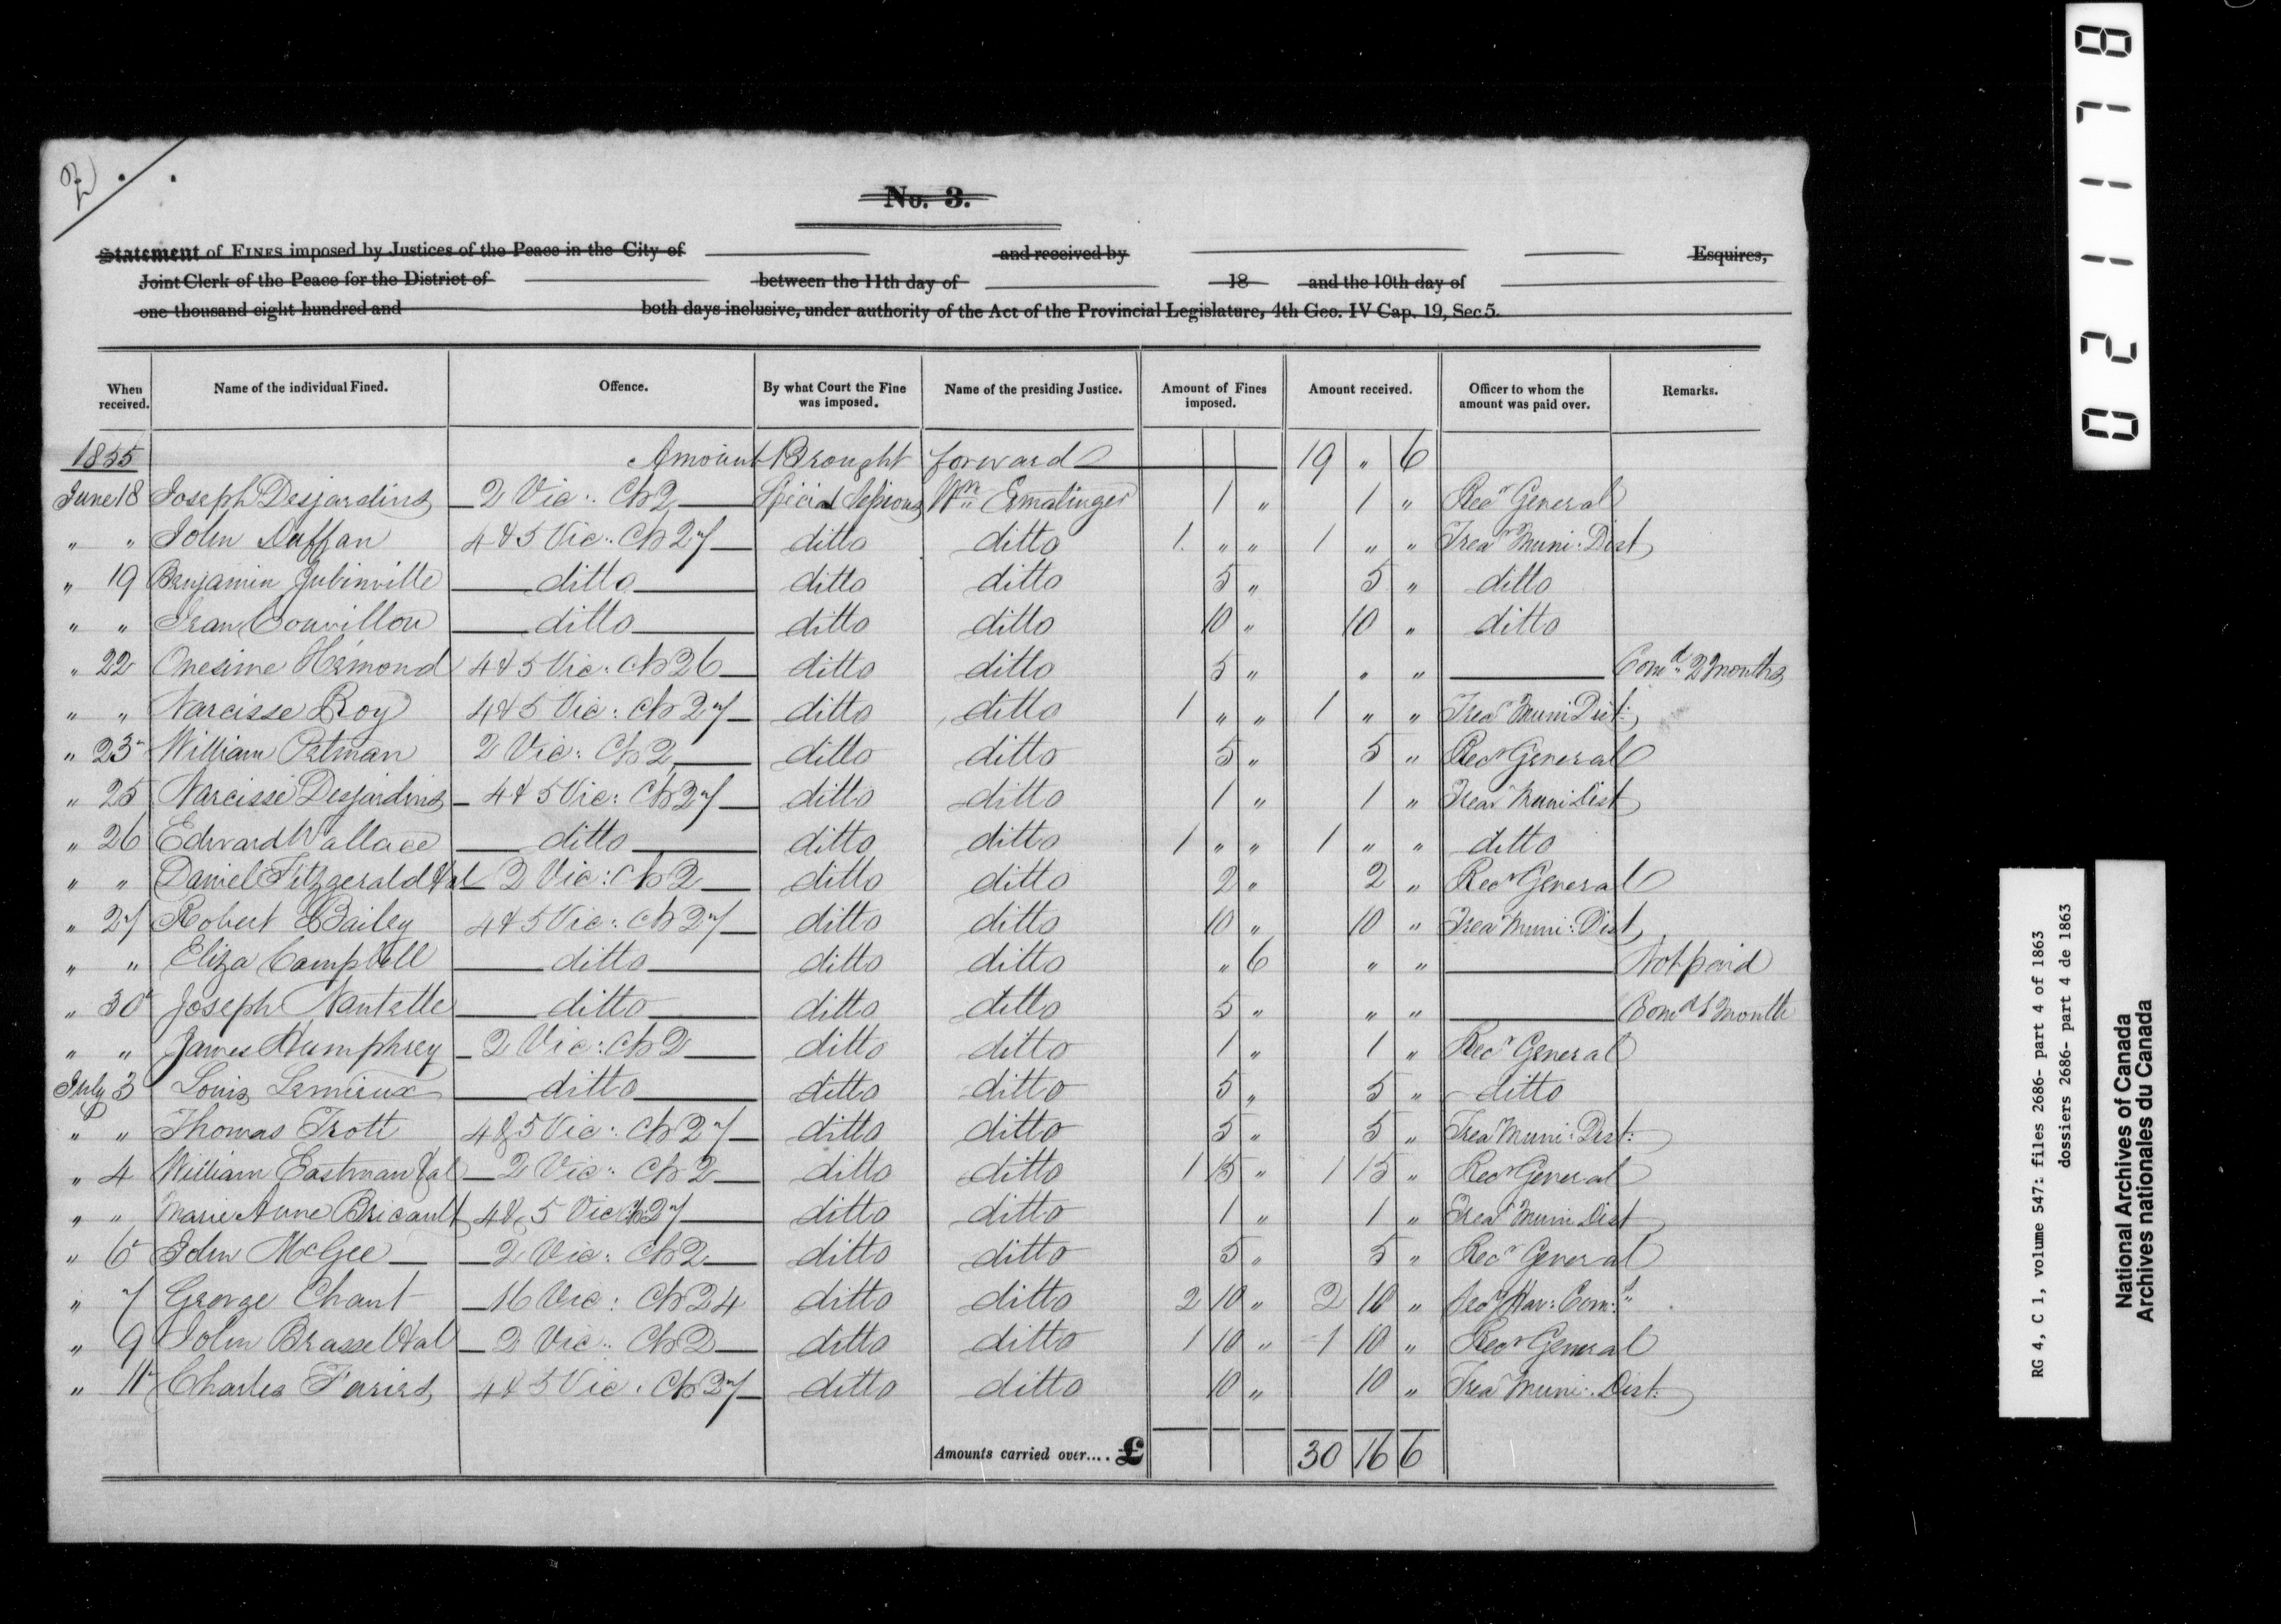 2
No. 3.
Statement of FINES imposed by Justices of the Peace in the City of and received by Esquires,
Joint Clerk of the Peace for the District of between the 11th day of 18 and the 10th day of
one thousand eight hundred and both days inclusive, under authority of the Act of the Provincial Legislature, 4th Geo. IV Cap. 19, Sec 5.
When received. Name of the individual Fined. Offence. By what Court the Fine was imposed. Name of the presiding Justice. Amount of Fines imposed. Amount received. Officer to whom the amount was paid over. Remarks.
1855 Amount Brought forward 19 " 6
June 18 Joseph Desjardins 2 Vic: Ch 2 Special Sessions Wm Ermatinger 1 " 1 " Recr General
" " John Duffan 4 & 5 Vic: Ch 27 ditto ditto 1 " " 1 " " Trear Muni: Dist
" 19 Benjamin Jubinville ditto ditto ditto 5 " 5 " ditto
" " Couvillon ditto ditto ditto 10 " 10 " ditto
" 22 Onesime Hémond 4 & 5 Vic: Ch 26 ditto ditto 5 " " " Comd 2 months
" " Narcisse Roy 4 & 5 Vic: Ch 27 ditto ditto 1 " " 1 " " Trear Muni Dist:
" 23 William Petman 2 Vic: Ch 2 ditto ditto 5 " 5 " Recr General
" 25 Narcisse Desjardins 4 & 5 Vic: Ch 27 ditto ditto 1 " 1 " Trear Muni Dist
" 26 Edward Wallace ditto ditto ditto 1 " " 1 " " ditto
" " Daniel Fitzgerald & al 2 Vic: Ch 2 ditto ditto 2 " 2 " Recr General
" 27 Robert Bailey 4 & 5 Vic: Ch 27 ditto ditto 10 " 10 " Trear Muni: Dist
" " Eliza Campbell ditto ditto ditto " 6 " " Not paid
" 30 Joseph Nantelle ditto ditto ditto 5 " " " Comd 1 month
" " James Humphrey 2 Vic: Ch 2 ditto ditto 1 " 1 " Recr General
July 3 Louis Lemieux ditto ditto ditto 5 " 5 " ditto
" " Thomas Trott 4 & 5 Vic: Ch 27 ditto ditto 5 " 5 " Trear Muni: Dist:
" 4 William Eastman & al 2 Vic: Ch 2 ditto ditto 1 15 " 1 15 " Recr General
" " Marie Anne Bricault 4 & 5 Vic Ch 27 ditto ditto 1 " 1 " Trear Muni Dist
" 6 John McGee 2 Vic: Ch 2 ditto ditto 5 " 5 " Recr General
" 7 George Chant 16 Vic: Ch 24 ditto ditto 2 10 " 2 10 " Secy Har: Comrs
" 9 John Brassel & al 2 Vic: Ch 2 ditto ditto 1 10 " 1 10 " Recr General
" 11 Charles 4 & 5 Vic: Ch 27 ditto ditto 10 " 10 " Trear Muni: Dist:
Amounts carried over.... £ 30 16 6
021178
RG 4, C 1, volume 547: files 2686- part 4 of 1863
dossiers 2686- part 4 de 1863
National Archives of Canada
Archives nationales du Canada